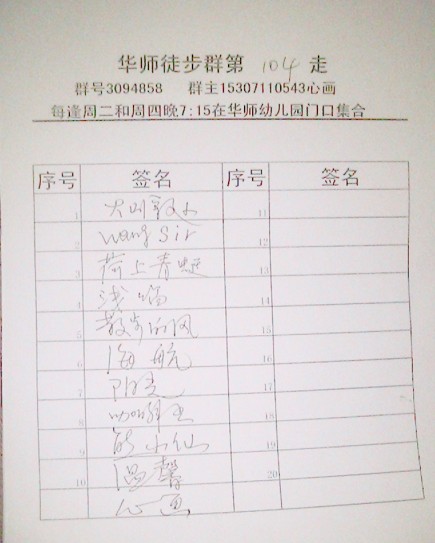 华师徒步群第 104 走
群号3094858 群主15307110543心画
每逢周二和周四晚7:15在华师幼儿园门口集合
序号 签名 序号 签名
1 11
2 wang Sir 12
3 荷上青蜓 13
4 浅 14
5 散步的风 15
6 海航 16
7 阳光 17
8 18
9 小仙 19
10 温馨 20
心画